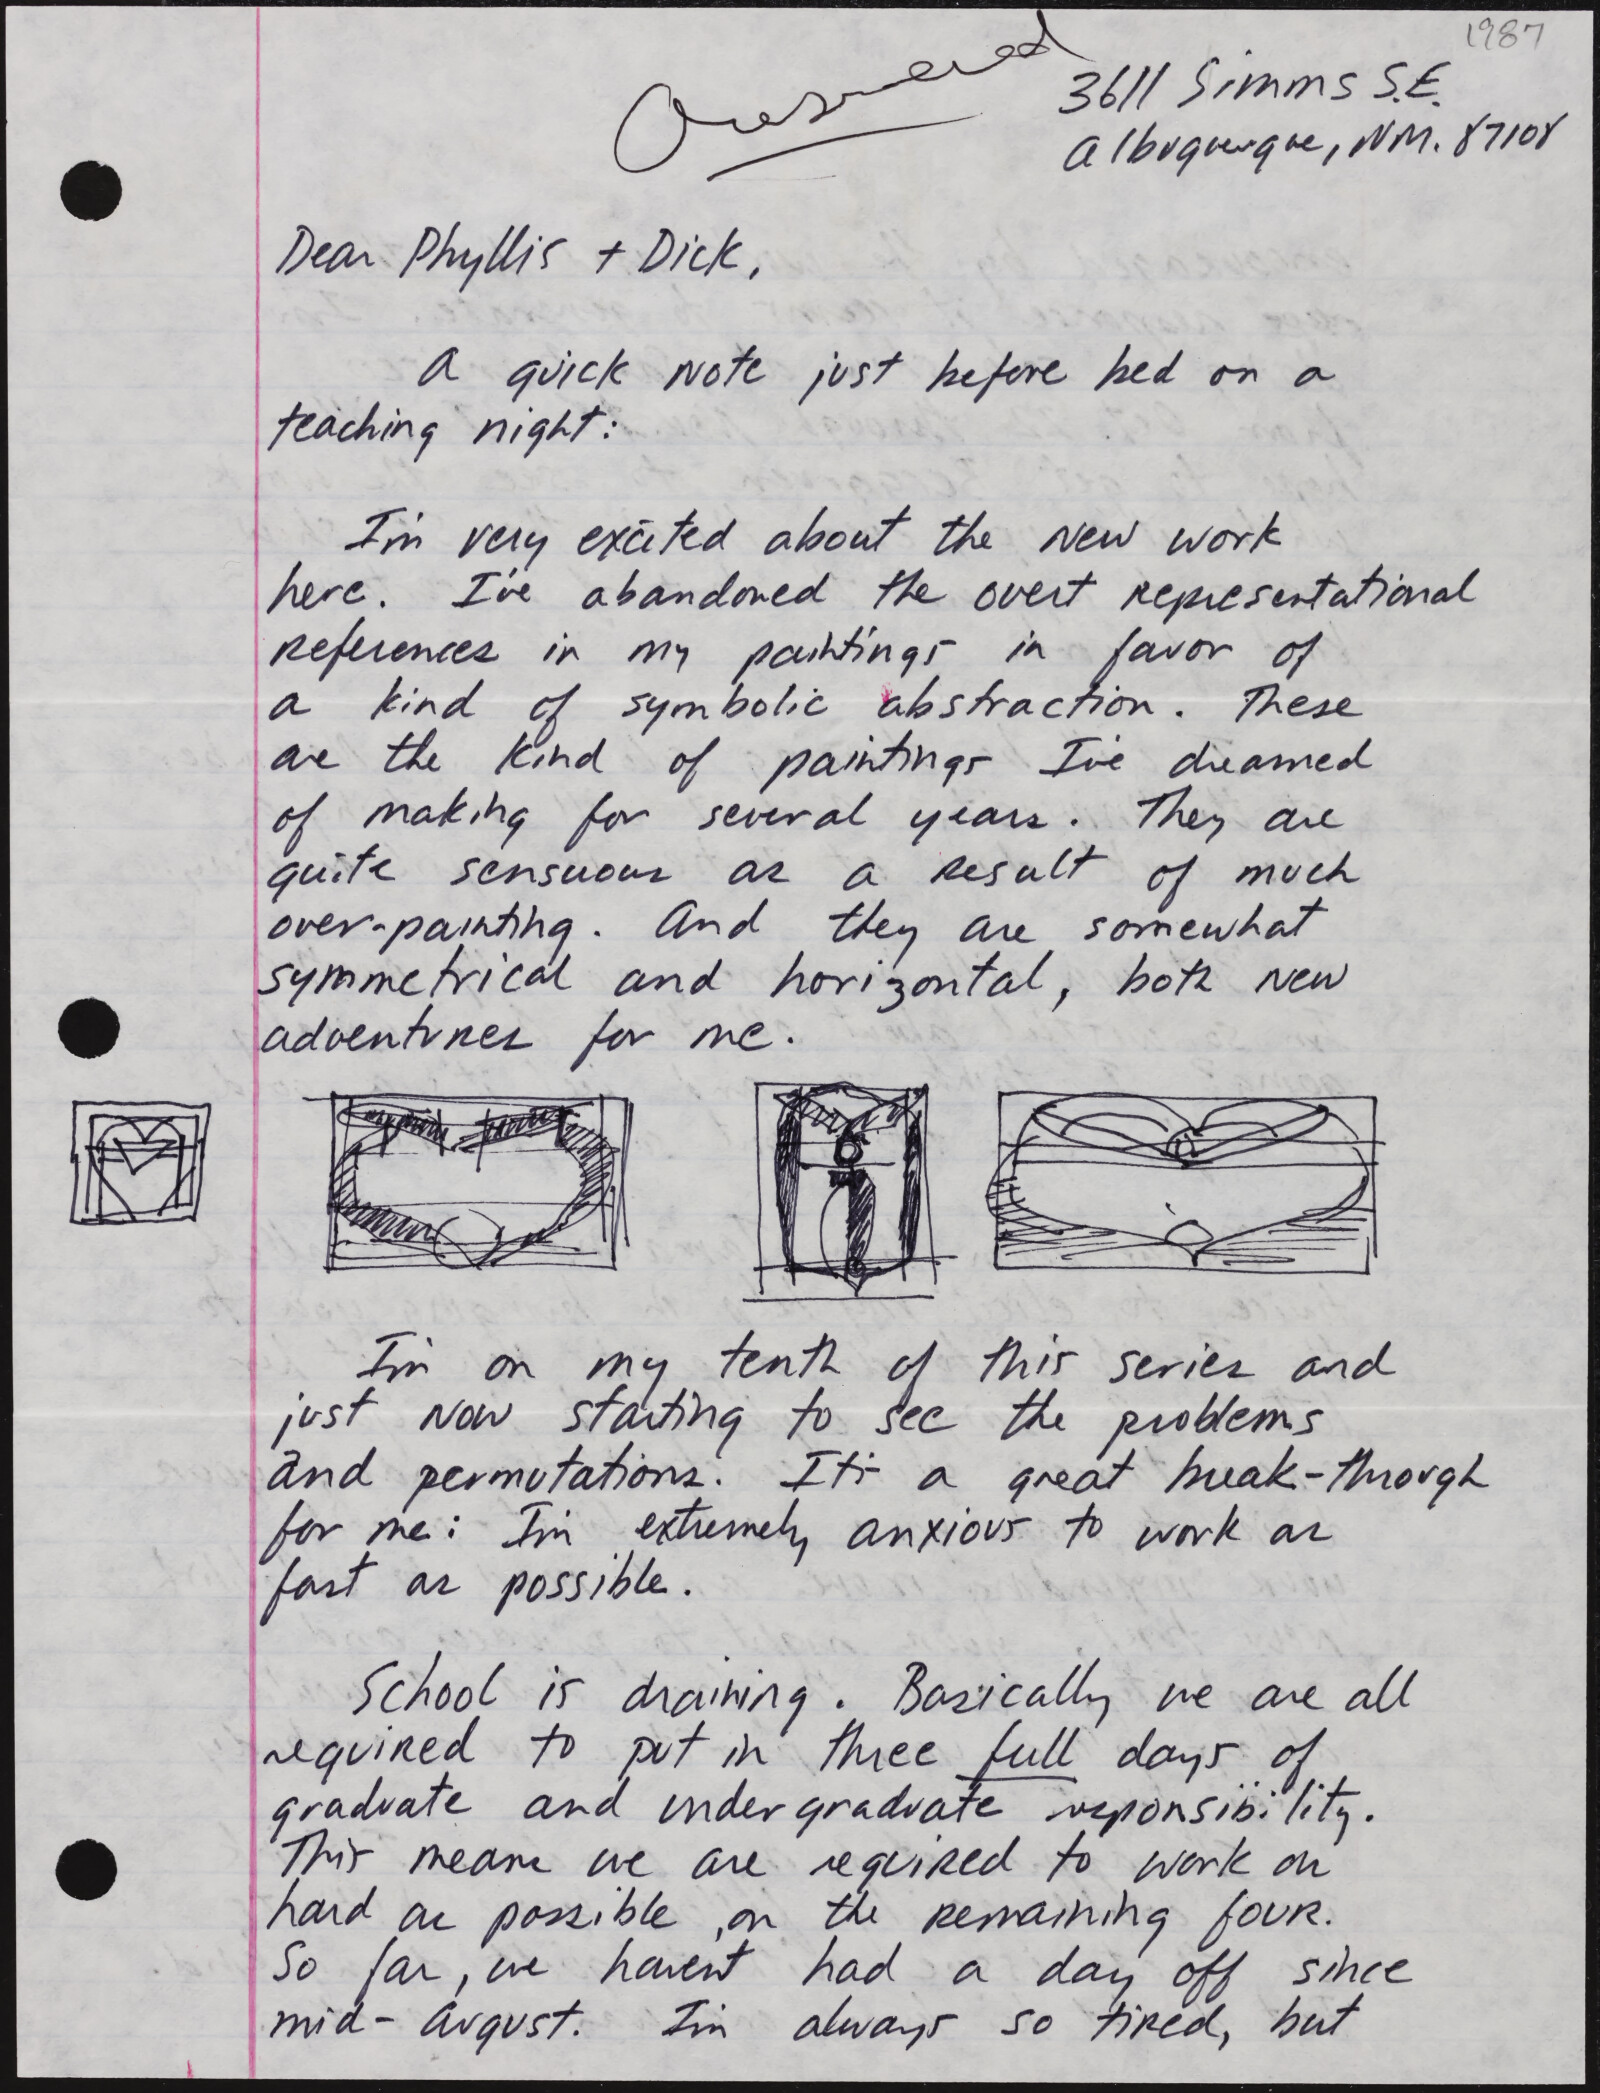 1987
Answered
3611 Simms S.E.
Albuquerque, NM. 87108
Dear Phyllis + Dick,
A quick note just before bed on a
teaching night:
I'm very excited about the new work
here. I've abandoned the overt representational
references in my paintings in favor of
a kind of symbolic abstraction. These
are the kind of paintings I've dreamed
of making for several years. They are
quite sensuous as a result of much
over-painting. And they are somewhat
symmetrical and horizontal, both new
adventures for me.
I'm on my tenth of this series and
just now starting to see the problems
and permutations. It's a great break-through
for me: I'm extremely anxious to work as
fast as possible.
School is draining. Basically we are all
required to put in three full days of
graduate and undergraduate responsibility.
This means we are required to work as
hard as possible on the remaining four.
So far, we haven't had a day off since
mid-August. I'm always so tired, but